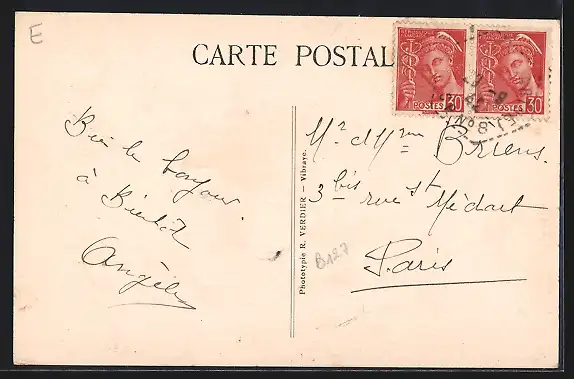 E
CARTE POSTAL
POSTES 30
POSTES 30
Bien le bonjour
à Bientôt
Angèle
Phototypie R. VERDIER — Vibraye.
B127
Mr et Mme Briens.
3 bis rue St Médart
Paris